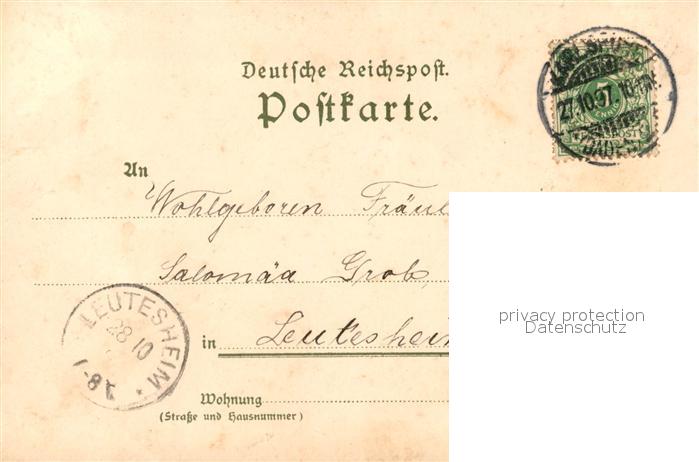 Deutsche Reichspost.
Postkarte.
27.10.97.
An
Wohlgeboren Fräul
Salomäa Grob
in Leutesheim
LEUTESHEIM
28 10
privacy protection
Datenschutz
Wohnung
(Straße und Hausnummer)